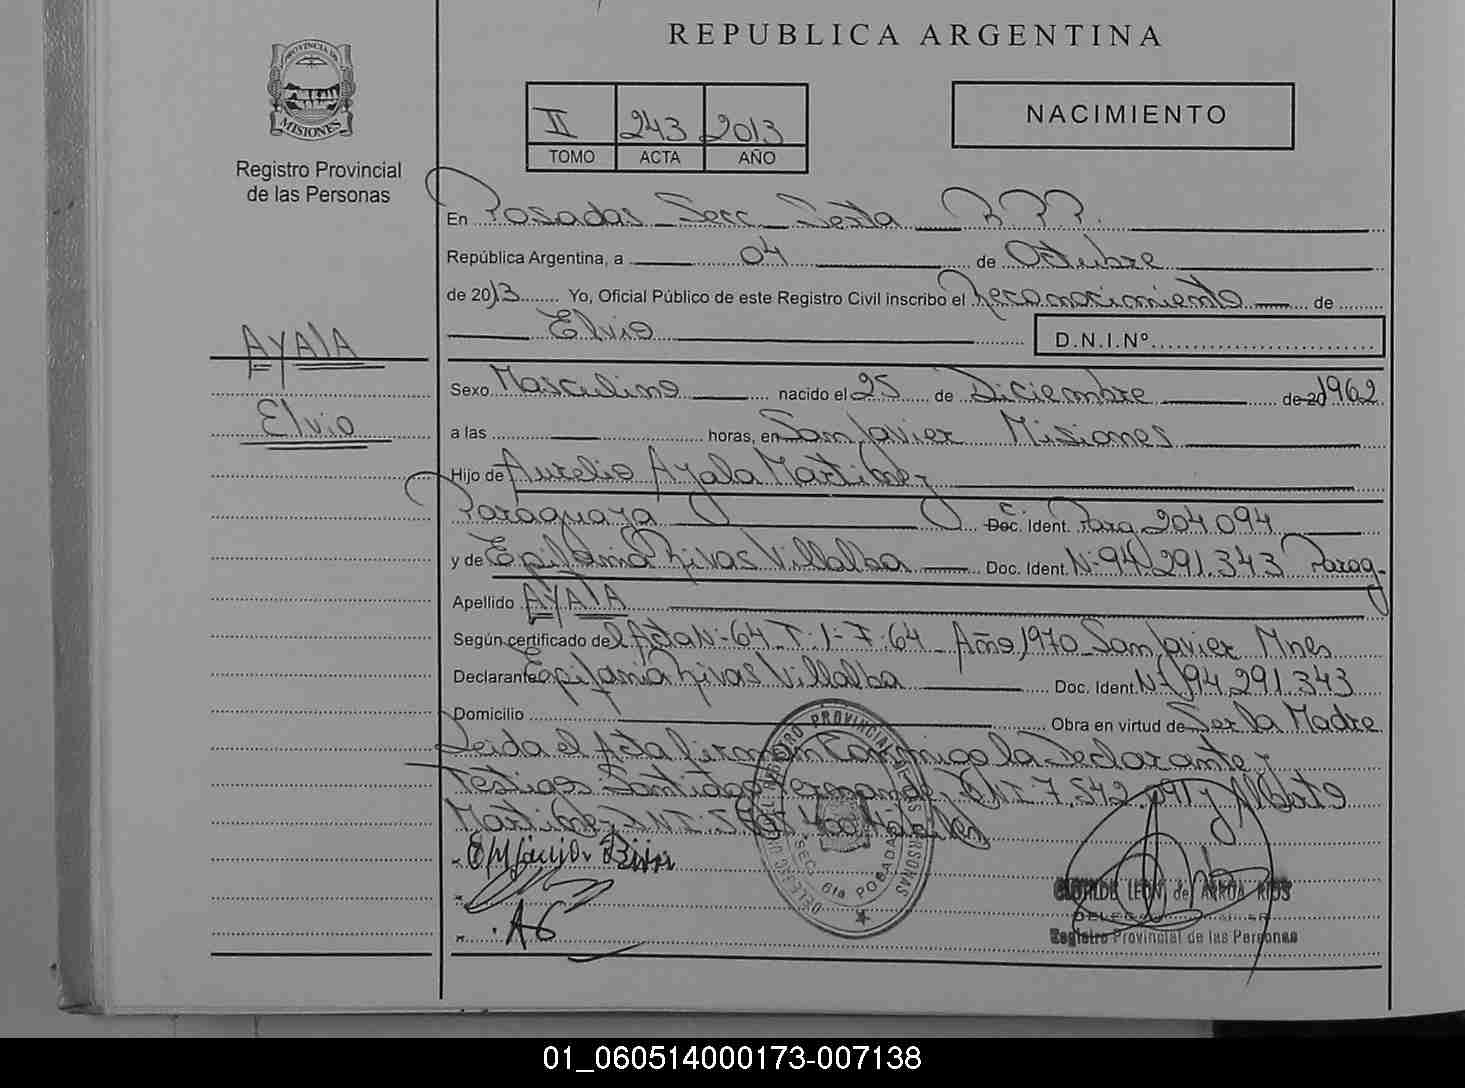 REPUBLICA ARGENTINA
PROVINCIA DE
MISIONES
Registro Provincial
de las Personas
II 243 2013
TOMO ACTA AÑO
NACIMIENTO
En Posadas Secc. Sexta R.P.P.
República Argentina, a 04 de Octubre
de 2013 Yo, Oficial Público de este Registro Civil inscribo el Reconocimiento de
Elvio D.N.I.Nº
AYALA
Elvio
Sexo Masculino nacido el 25 de Diciembre de 20 1962
a las horas, en San Javier Misiones
Hijo de Aurelio Ayala Martinez
Paraguaya C. Doc. Ident. Para 204.094
y de Epifania Rivas Villalba Doc. Ident. Nº 94.291.343 Parag.
Apellido AYALA
Según certificado de Acta Nº 64 T: 1 F: 64 Año 1970 San Javier Mnes
Declarante Epifania Rivas Villalba Doc. Ident. Nº 94.291.343
Domicilio Obra en virtud de Ser la Madre
Leida el Acta firman Conmigo la Declarante y
Testigos DNI 7.542. y
Martinez DNI
AG
REGISTRO PROVINCIAL DE LAS PERSONAS
SEC. 6ta POSADAS
CLOTILDE LEON de ARRUA RIOS
Registro Provincial de las Personas
01_060514000173-007138